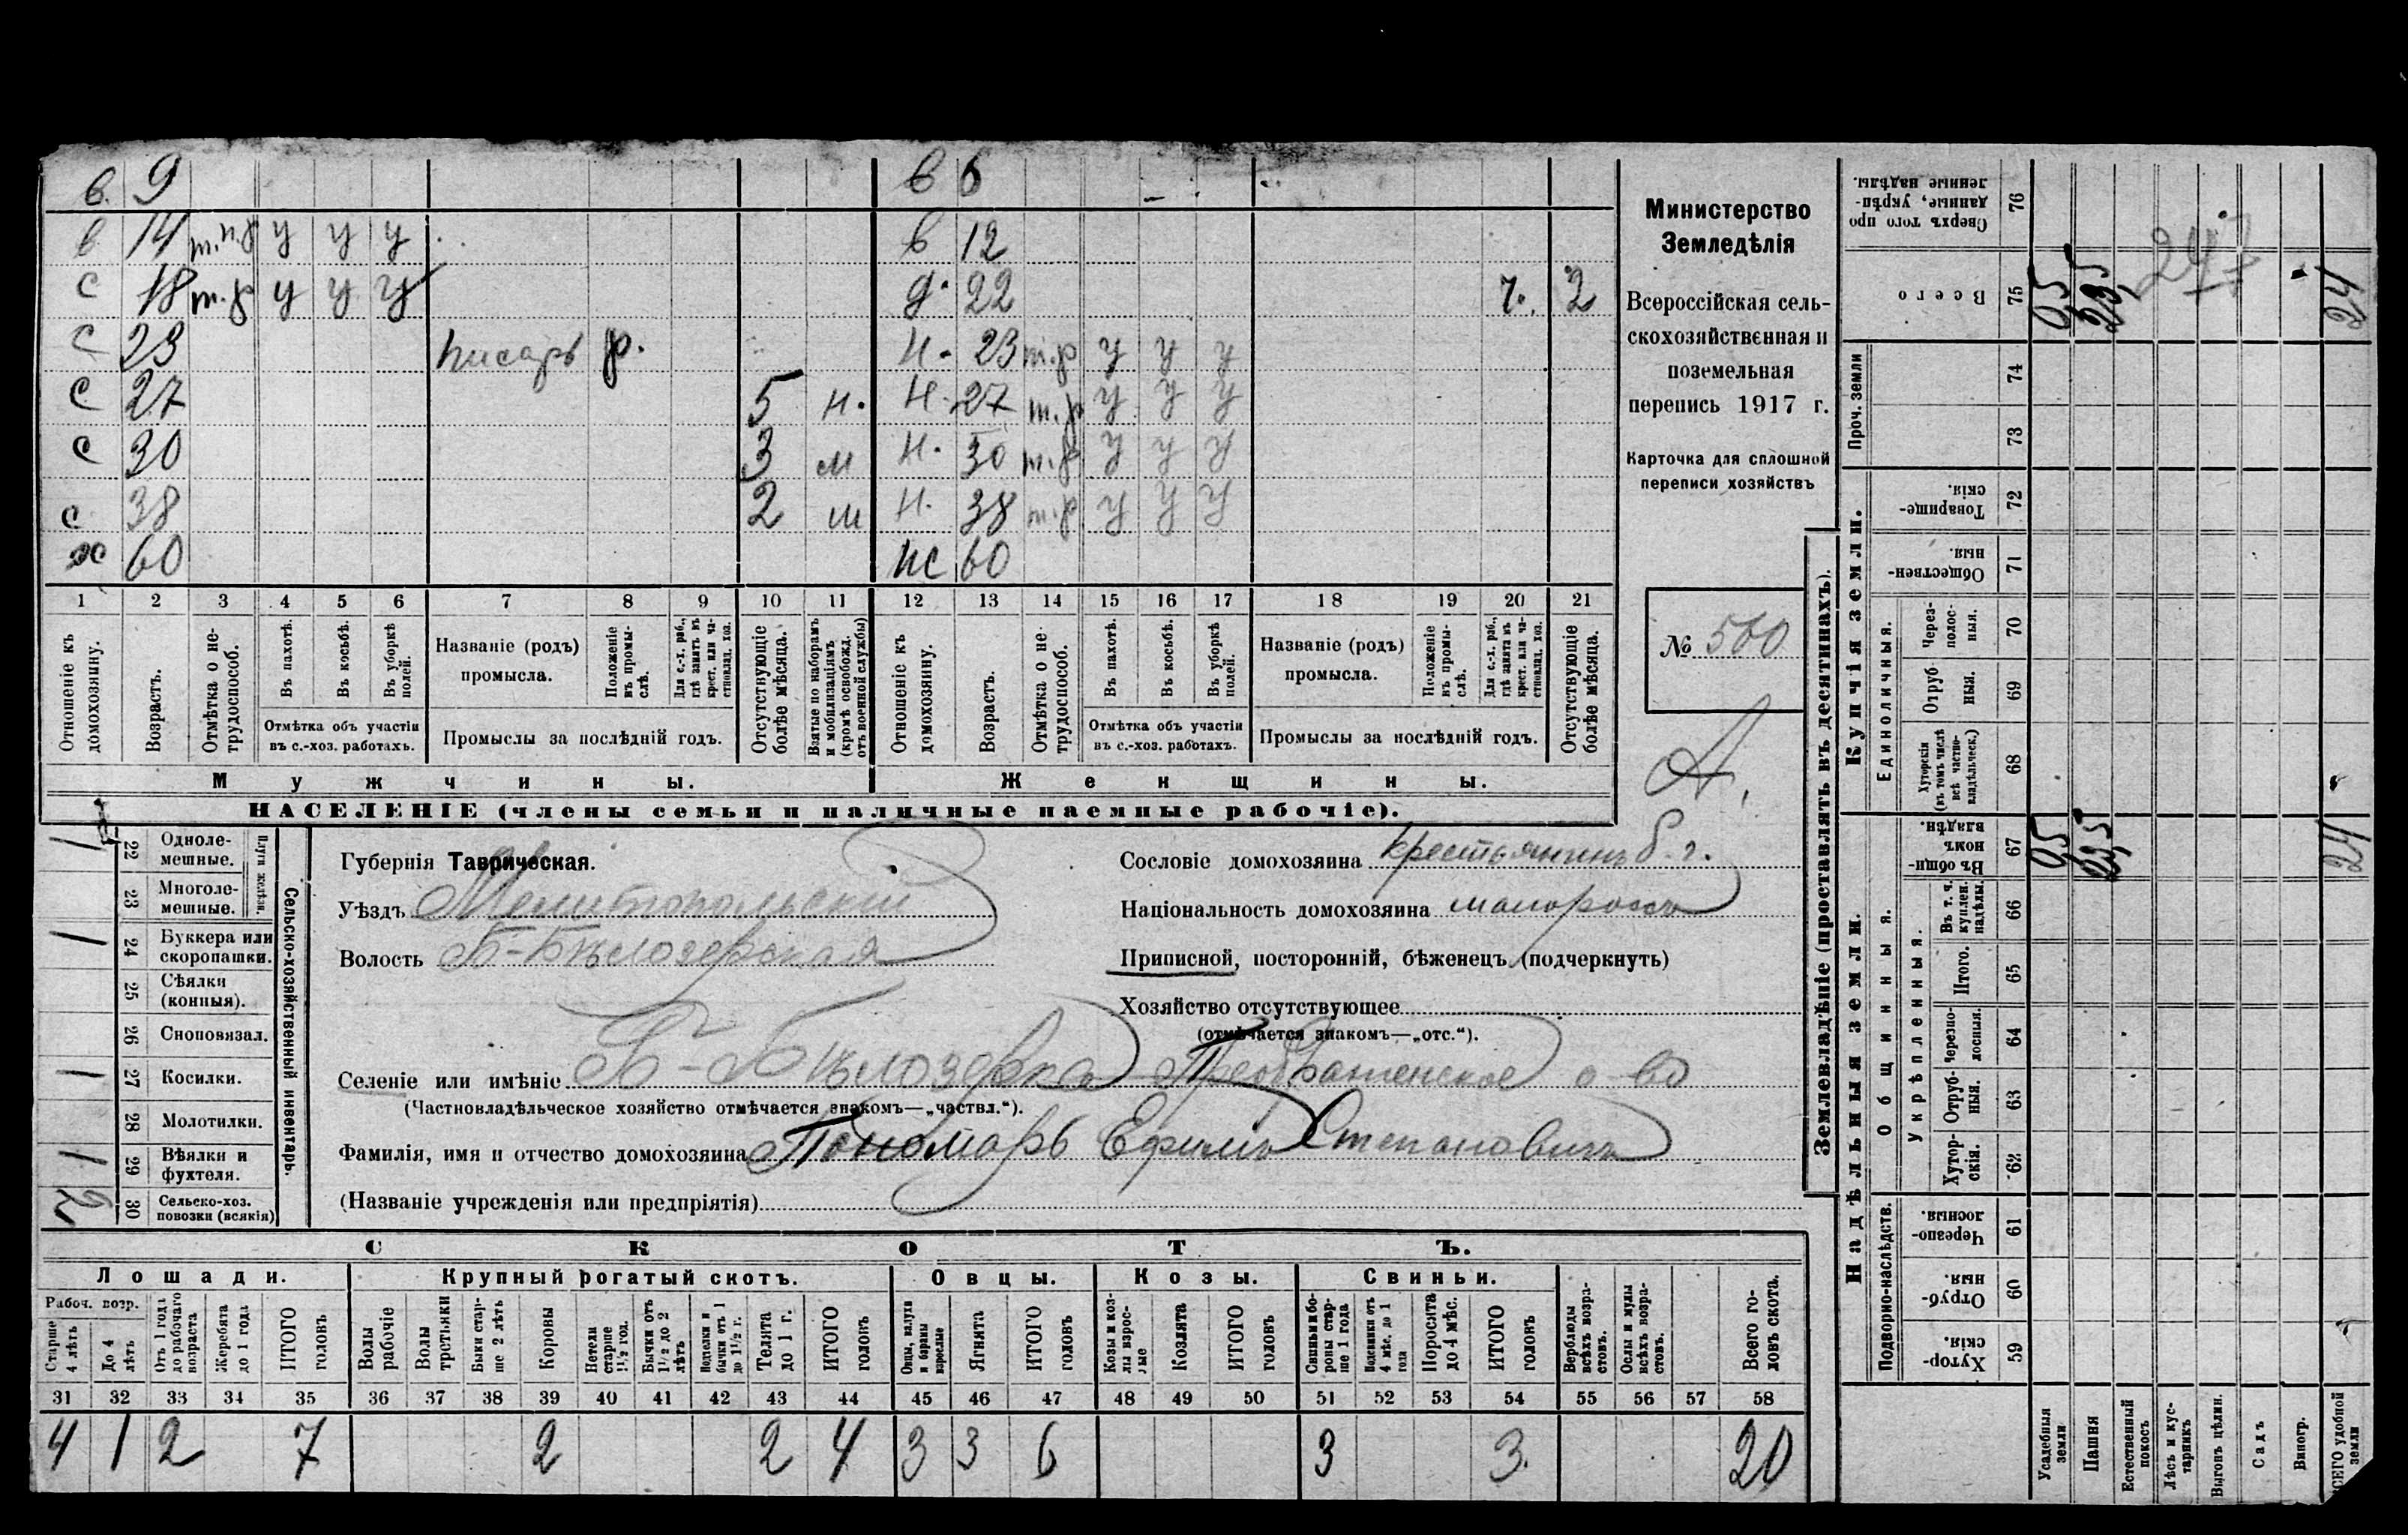 в. 9 в 6
в 14 т.п.р у у у в 12
с 18 т.р у у у д. 22 г. 2
с 23 писарь р. н. 23 т.р у у у
с 27 5 н. н. 27 т.р у у у
с 30 3 м н. 30 т.р у у у
с 38 2 м н. 38 т.р у у у
х 60 жс 60
1 2 3 4 5 6 7 8 9 10 11 12 13 14 15 16 17 18 19 20 21
Отношеніе къ домохозяину.
Возрастъ.
Отмѣтка о нетрудоспособ.
Въ пахотѣ.
Въ косьбѣ.
Въ уборкѣ полей.
Отмѣтка объ участіи
въ с.-хоз. работахъ.
Названіе (родъ)
промысла.
Положеніе въ промыслѣ.
Для с.-х. раб., гдѣ занятъ въ крест. или частновлад. хоз.
Промыслы за послѣдній годъ.
Отсутствующіе болѣе мѣсяца.
Взятые по наборамъ и мобилизаціямъ (кромѣ освобожд. отъ военной службы)
Отношеніе къ домохозяину.
Возрастъ.
Отмѣтка о нетрудоспособ.
Въ пахотѣ.
Въ косьбѣ.
Въ уборкѣ полей.
Отмѣтка объ участіи
въ с.-хоз. работахъ.
Названіе (родъ)
промысла.
Положеніе въ промыслѣ.
Для с.-х. раб., гдѣ занятъ въ крест. или частновлад. хоз.
Промыслы за послѣдній годъ.
Отсутствующіе болѣе мѣсяца.
Мужчины. Женщины.
НАСЕЛЕНІЕ (члены семьи и наличные наемные рабочіе).
Министерство
Земледѣлія
Всероссійская сель-
скохозяйственная и
поземельная
перепись 1917 г.
Карточка для сплошной
переписи хозяйствъ
№ 500
А.
Сельско-хозяйственный инвентарь.
Плуги желѣзн.
22 Одноле-
мешные.
23 Многоле-
мешные.
24 Буккера или
скоропашки.
25 Сѣялки
(конныя).
26 Сноповязал.
27 Косилки.
28 Молотилки.
29 Вѣялки и
фухтеля.
30 Сельско-хоз.
повозки (всякія)
1
1
1
1
2
Губернія Таврическая.
Уѣздъ Мелитопольскій
Волость Б-Бѣлозерская
Сословіе домохозяина крестьянинъ б. г.
Національность домохозяина малороссъ
Приписной, посторонній, бѣженецъ (подчеркнуть)
Хозяйство отсутствующее
(отмѣчается знакомъ—„отс.“).
Селеніе или имѣніе Б-Бѣлозерка Преображенское о-во
(Частновладѣльческое хозяйство отмѣчается знакомъ—„частвл.“).
Фамилія, имя и отчество домохозяина Пономарь Ефимъ Степановичъ
(Названіе учрежденія или предпріятія)
СКОТЪ.
Лошади. Крупный рогатый скотъ. Овцы. Козы. Свиньи.
Рабоч. возр.
Старше 4 лѣтъ
До 4 лѣтъ
Отъ 1 года до рабочаго возраста
Жеребята до 1 года
ИТОГО головъ
Волы рабочіе
Волы третьяки
Быки старше 2 лѣтъ
Коровы
Нетели старше 1½ год.
Бычки отъ 1½ до 2 лѣтъ
Подтелки и бычки отъ 1 до 1½ г.
Телята до 1 г.
ИТОГО головъ
Овцы, валухи и бараны взрослые
Ягнята
ИТОГО головъ
Козы и козлы взрослые
Козлята
ИТОГО головъ
Свиньи и боровы старше 1 года
Подсвинки отъ 4 мѣс. до 1 года
Поросята до 4 мѣс.
ИТОГО головъ
Верблюды всѣхъ возрастовъ.
Ослы и мулы всѣхъ возрастовъ.
Всего головъ скота.
31 32 33 34 35 36 37 38 39 40 41 42 43 44 45 46 47 48 49 50 51 52 53 54 55 56 57 58
4 1 2 7 2 2 4 3 3 6 3 3. 20
Землевладѣніе (проставлять въ десятинахъ).
Купчія земли.
Надѣльныя земли.
Проч. земли
Единоличныя.
Общинныя.
Укрѣпленныя.
Подворно-наслѣдств.
Сверхъ того проданные, укрѣпленные надѣлы. 76
Всего 75
74
73
Товарищескія. 72
Общественныя. 71
Черезполосныя. 70
Отрубныя. 69
Хуторскія (въ томъ числѣ всѣ частновладѣльческ.) 68
Въ общинномъ владѣн. 67
Въ т. ч. куплен. надѣлы. 66
Итого. 65
Черезполосныя. 64
Отрубныя. 63
Хуторскія. 62
Черезполосныя. 61
Отрубныя. 60
Хуторскія 59
Усадебныя земли
Пашня
Естественный покосъ
Лѣсъ и кустарникъ
Выгонъ цѣлин.
Садъ
Виногр.
ВСЕГО удобной земли
0,5
23,5
24
0,5
23,5
24